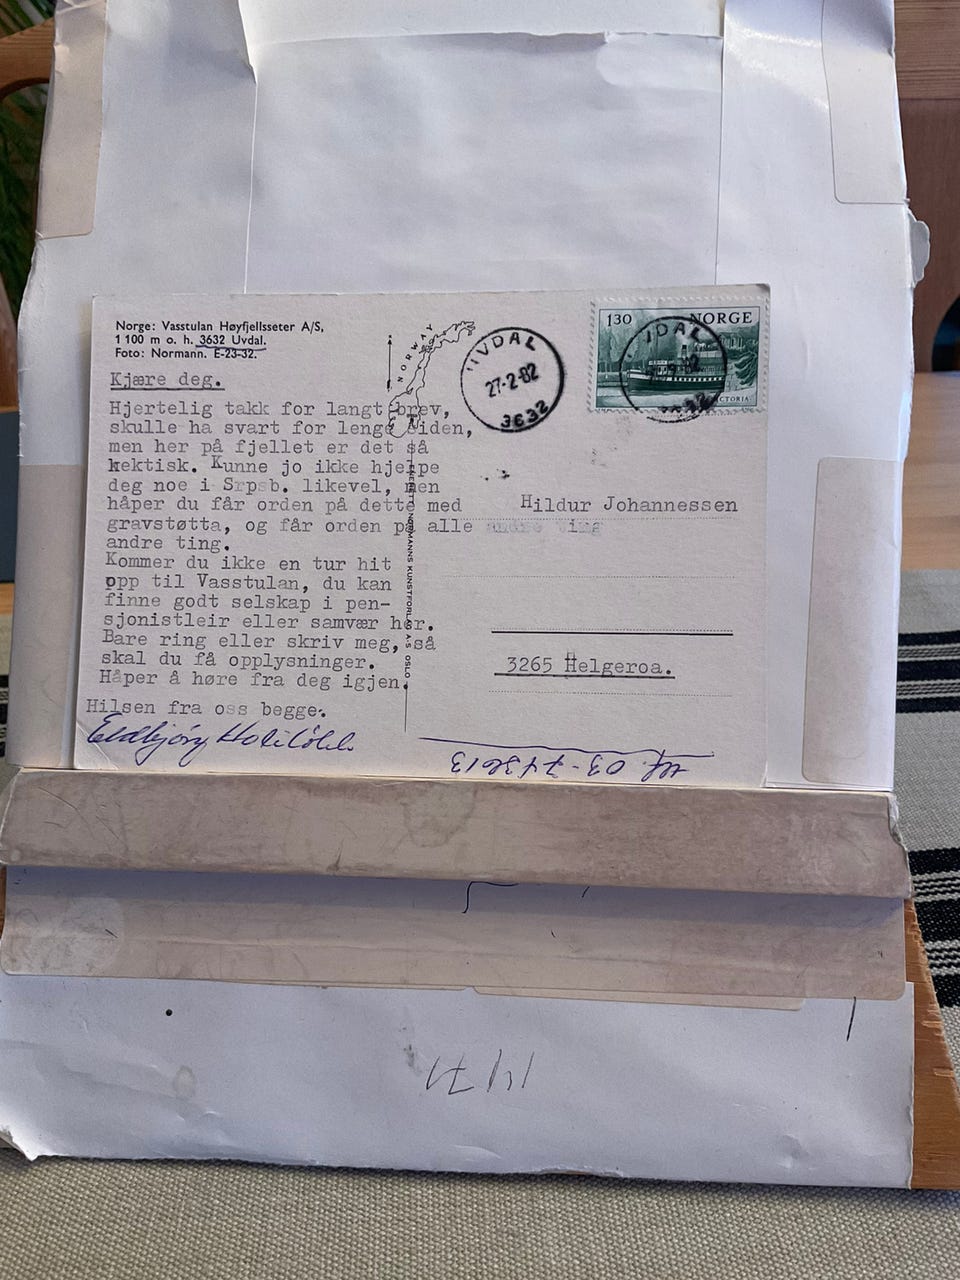 Norge: Vasstulan Høyfjellsseter A/S,
1 100 m o. h. 3632 Uvdal.
Foto: Normann. E-23-32.
Kjære deg.
Hjertelig takk for langt brev,
skulle ha svart for lenge siden,
men her på fjellet er det så
hektisk. Kunne jo ikke hjelpe
deg noe i Srpsb. likevel, men
håper du får orden på dette med
gravstøtta, og får orden på alle
andre ting.
Kommer du ikke en tur hit
opp til Vasstulan, du kan
finne godt selskap i pen-
sjonistleir eller samvær her.
Bare ring eller skriv meg, så
skal du få opplysninger.
Håper å høre fra deg igjen.
Hilsen fra oss begge.
NORWAY
NORMANNS KUNSTFORLAG A.S OSLO
UVDAL
27-2-82
3632
130 NORGE
Hildur Johannessen
3265 Helgeroa.
tlf. 03-743613